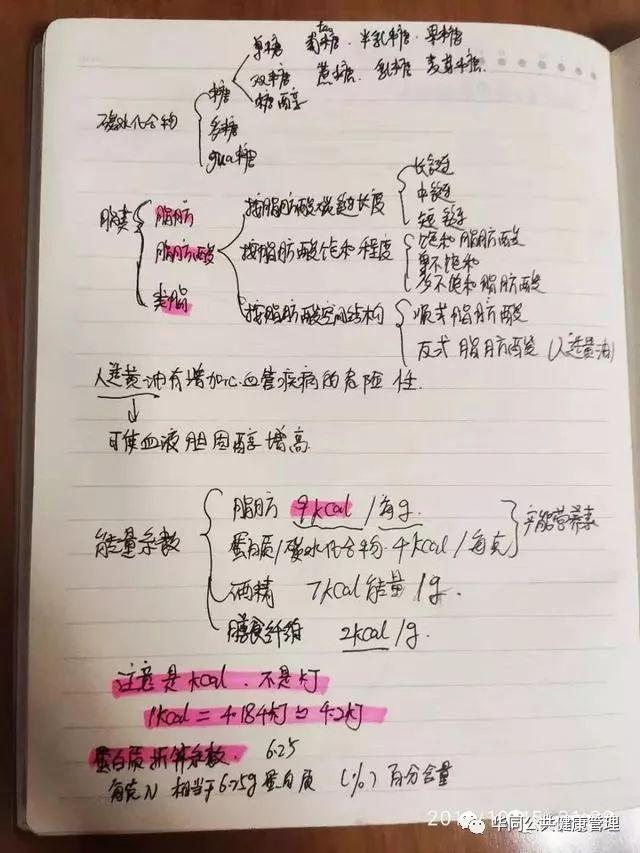 单糖 葡萄糖·半乳糖·果糖
糖 双糖 蔗糖、乳糖 麦芽糖
糖醇
碳水化合物
多糖
gua糖
长链
脂类 脂肪 按脂肪酸碳链长度 中链
短链
脂肪酸 按脂肪酸饱和程度 饱和脂肪酸
单不饱和
多不饱和脂肪酸
类脂 按脂肪酸空间结构 顺式脂肪酸
反式脂肪酸(人造黄油)
人造黄油有增加心血管疾病的危险性.
可使血液胆固醇增高
脂肪 9kcal/每g.
能量系数 蛋白质/碳水化合物·4kcal/每克 产能营养素
酒精 7kcal能量/g.
膳食纤维 2kcal/g.
注意是kcal.不是kJ
1kcal=4.184kJ≈4.2kJ
蛋白质折算系数. 6.25
每克N 相当于6.25g蛋白质 (%)百分含量
华同公共健康管理